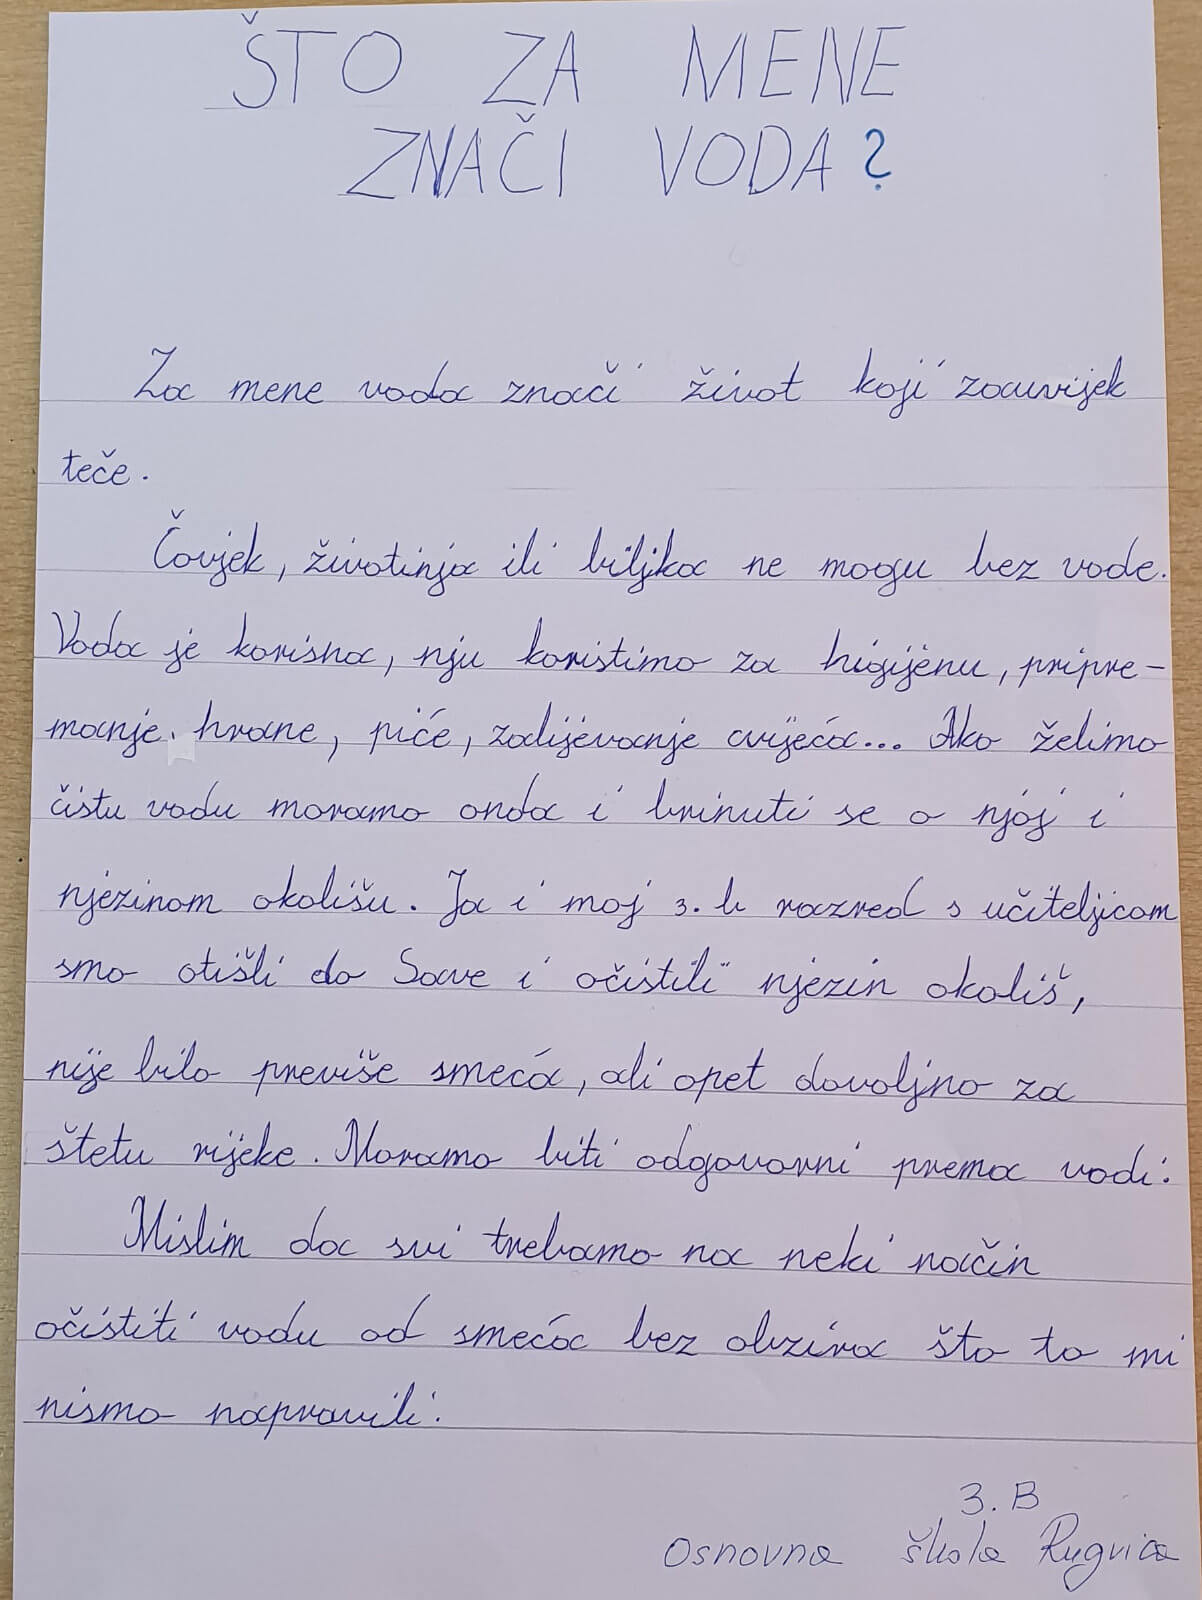 ŠTO ZA MENE
ZNAČI VODA?
Za mene voda znači život koji zauvijek
teče.
Čovjek, životinja ili biljka ne mogu bez vode.
Voda je korisna, nju koristimo za higijenu, pripre-
manje hrane, piće, zalijevanje cvijeća... Ako želimo
čistu vodu moramo onda i brinuti se o njoj i
njezinom okolišu. Ja i moj 3. b razred s učiteljicom
smo otišli do Save i očistili njezin okoliš,
nije bilo previše smeća, ali opet dovoljno za
štetu rijeke. Moramo biti odgovorni prema vodi.
Mislim da svi trebamo na neki način
očistiti vodu od smeća bez obzira što to mi
nismo napravili.
3. B
Osnovna škola Rugvica